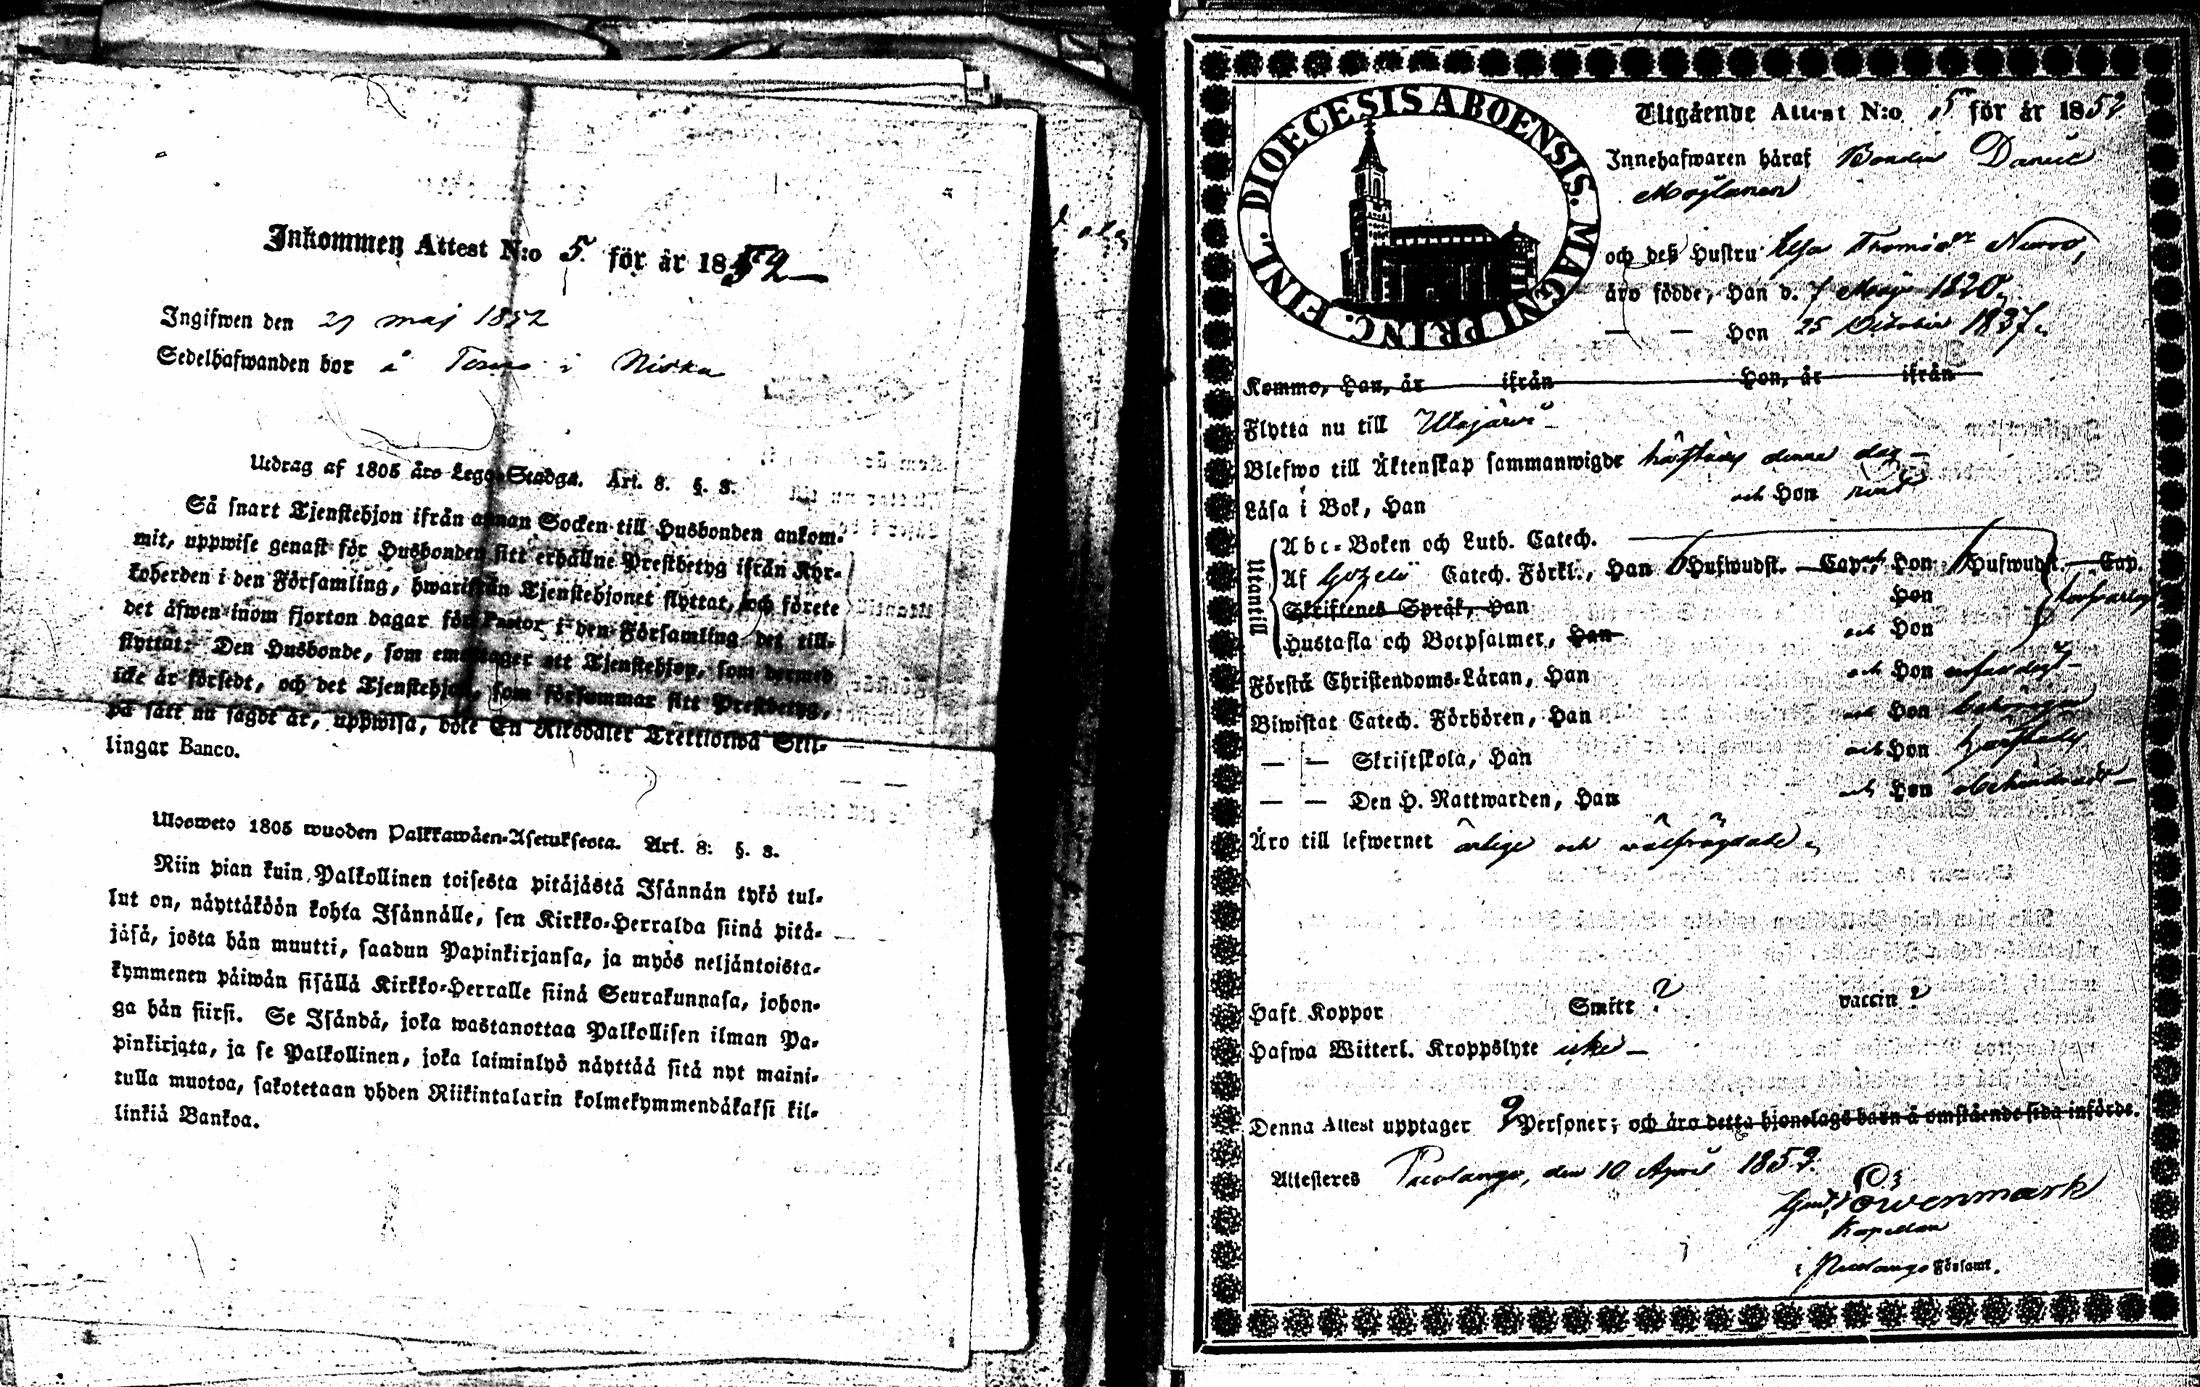 Inkommen Attest N:o 5. för år 1852
Ingifwen den 29 maj 1852
Sedelhafwanden bor å Termo i Niska
Utdrag af 1805 års Lego-Stadga. Art. 8. §. 3.
Så snart Tjenstehjon ifrån annan Socken till Husbonden ankom-
mit, uppwise genast för Husbonden sitt erhållne Prestbetyg ifrån Kyr-
koherden i den Församling, hwarifrån Tjenstehjonet flyttat, och förete
det äfwen inom fjorton dagar för Pastor i den Församling det till-
flyttat. Den Husbonde, som emottager ett Tjenstehjon, som dermed
icke är försedt, och det Tjenstehjon, som försummar sitt Prestbetyg,
på sätt nu sagdt är, uppwisa, böte En Riksdaler Trettiotwå Skil-
lingar Banco.
Ulosweto 1805 wuoden Palkkawäen-Asetuksesta. Art. 8: §. 3.
Niin pian kuin Palkollinen toisesta pitäjästä Isännän tykö tul-
lut on, näyttäköön kohta Isännälle, sen Kirkko-Herralda siinä pitä-
jäsä, josta hän muutti, saadun Papinkirjansa, ja myös neljäntoista-
kymmenen päiwän sisällä Kirkko-Herralle siinä Seurakunnasa, johon-
ga hän siirsi. Se Isändä, joka wastanottaa Palkollisen ilman Pa-
pinkirjata, ja se Palkollinen, joka laiminlyö näyttää sitä nyt maini-
tulla muotoa, sakotetaan yhden Riikintalarin kolmekymmendäkaksi kil-
linkiä Bankoa.
DIOECESIS ABOENSIS. MAGNI PRINC. FINL.
Utgående Attest N:o 5 för år 1852
Innehafwaren häraf Bonden Daniel
Moilanen
och deß Hustru Elsa Thomädr Nurro,
äro födde, Han d. 7 Maji 1820,
— — Hon 25 October 1837.
Komme, Han, år ifrån Hon, år ifrån
Flytta nu till Utajärvi
Blefwo till Äktenskap sammanwigde härstädes denna dag
Läsa i Bok, Han och Hon rent
Utantill
Abc-Boken och Luth. Catech.
Af Gezelii Catech. Förkl., Han 6 Hufwudst. Cap., och Hon 6 Hufwudst. Cap.
Skriftenes Språk, Han Hon
Hustafla och Botpsalmer, Han och Hon
Förstå Christendoms-Läran, Han och Hon
Biwistat Catech. Förhören, Han och Hon
— — Skriftskola, Han och Hon härstädes
— — Den H. Nattwarden, Han och Hon obehindrade
Äro till lefwernet ärlige och välfrägdade,
Haft Koppor Smitt ? vaccin ?
Hafwa Witterl. Kroppslyte icke
Denna Attest upptager 2 Personer; och äro detta hjonelags barn å omstående sida införde.
Attesteres Puolango, den 10 April 1852.
Löwenmark
Kapellan
i Puolango Församl.